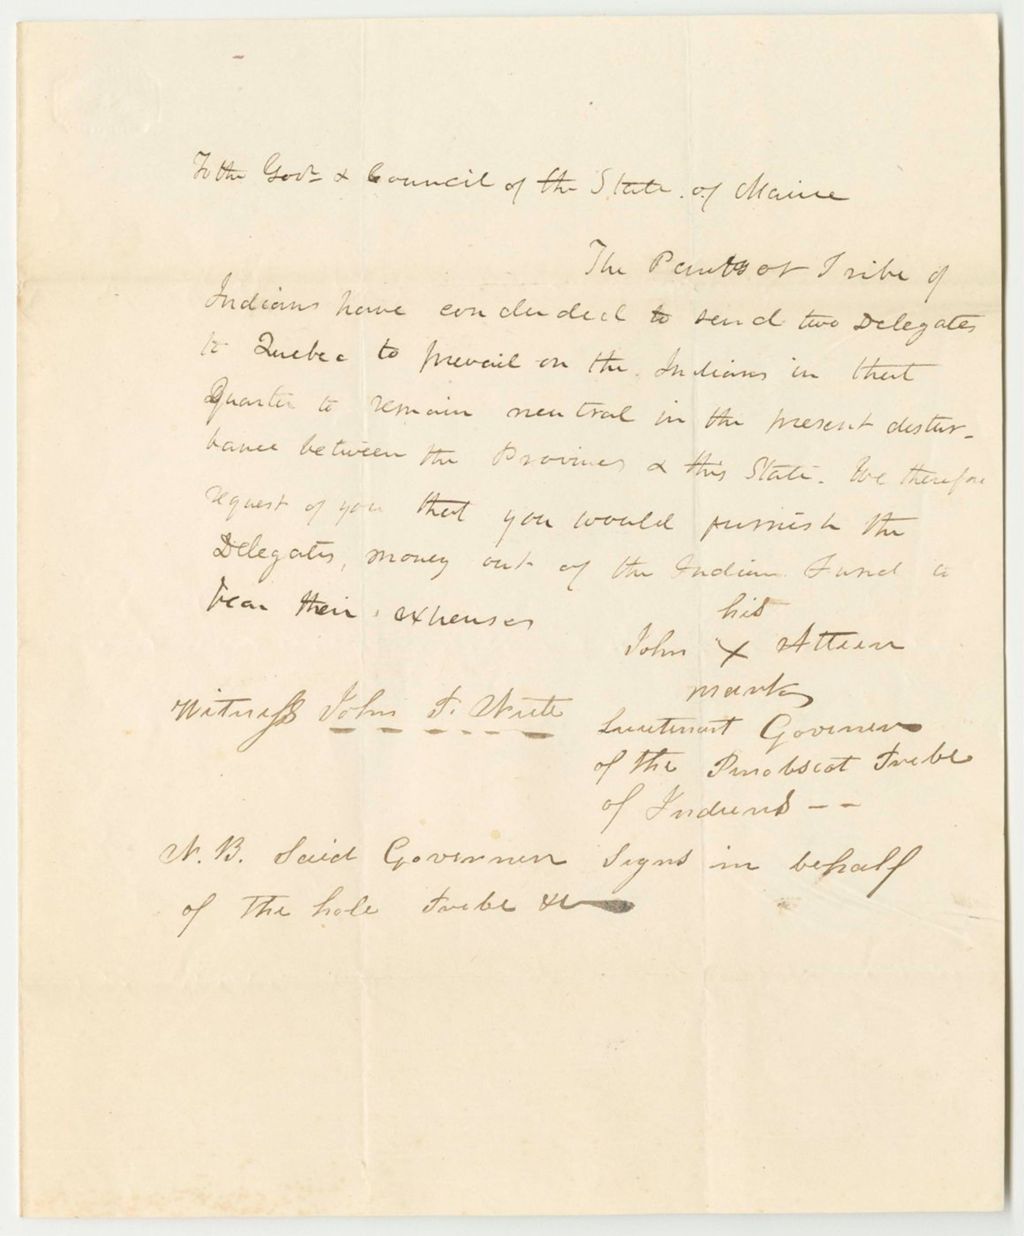 To the Govr & Council of the State of Maine
The Penobsot Tribe of
Indians have concluded to send two Delegates
to Quebec to prevail on the Indians in that
Quarter to remain neutral in the present distur-
bance between the Province & this State. We therefore
request of you that you would furnish the
Delegates, money out of the Indian Fund to
bear their expenses
his
John X Atteen
mark
Witness John F. Nute
Lieutenant Governer
of the Penobscot Tribe
of Indians --
N.B. Said Governer signs in behalf
of the hole Tribe &c